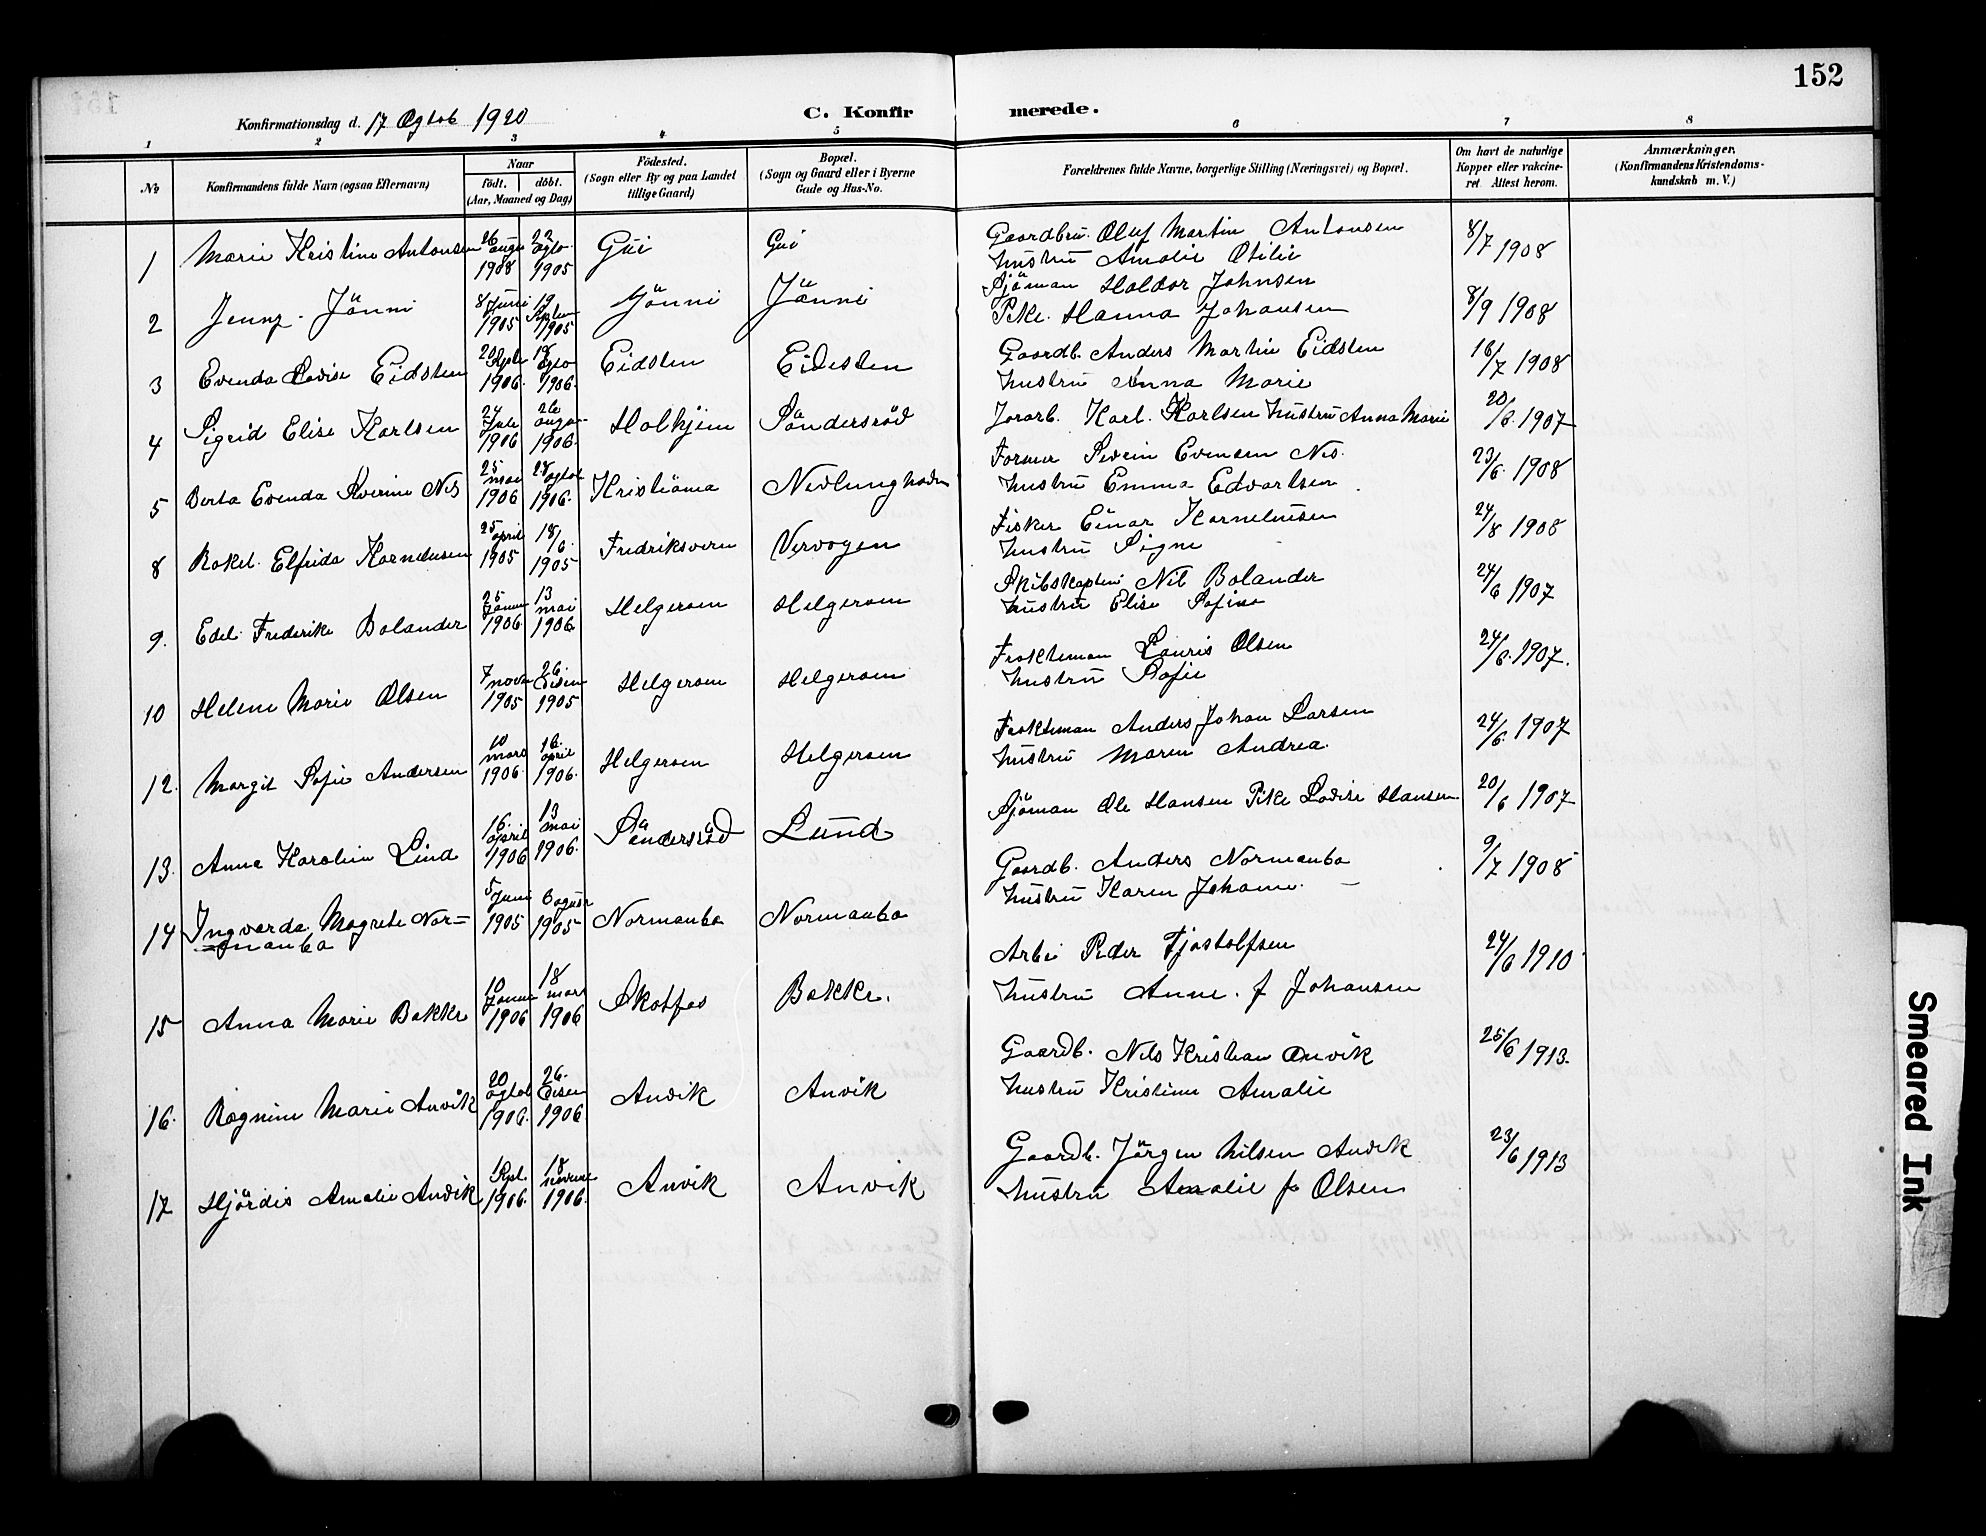 152
Konfirmationsdag d. 17 Ogtob 1920
C. Konfirmerede.
1 2 3 4 5 6 7 8
No
Konfirmandens fulde Navn (ogsaa Efternavn)
Naar
födt. döbt.
(Aar, Maaned og Dag)
Födested.
(Sogn eller By og paa Landet
tillige Gaard)
Bopæl.
(Sogn og Gaard eller i Byerne
Gade og Hus-No.
Forældrenes fulde Navne, borgerlige Stilling (Næringsvei) og Bopæl.
Om havt de naturlige
Kopper eller vakcine-
ret. Attest herom.
Anmærkninger.
(Konfirmandens Kristendoms-
kundskab m. V.)
1 Marie Kristine Antonsen 26 augu 1908 22 ogto 1905 Gui Gui Gaardbru. Oluf Martin Antonsen 8/7 1908
hustru Amalie Otilie
2 Jenny Jönni 8 Juni 1905 19 Septem 1905 Jönni Jönni Sjöman Haldor Johnsen 8/9 1908
Pike. Hanna Johansen
3 Evenda Lovise Eidsten 20 Septe 1906. 18 Ogto 1906. Eidsten Eidesten Gaardb. Anders Martin Eidsten 16/7 1908
hustru Anna Marie
4 Sigrid Elise Karlsen 24 Jule 1906 26 augu 1906. Holkjem Söndersröd Jorarb. Karl. Karlsen hustru Anna Marie 20/6. 1907
5 Berta Evenda Severine Nes 25 mai 1906 28 ogtob 1906. Kristiania Nevlunghavn Former Severin Evensen Nes. 23/6. 1908
hustru Emma Edvartsen
8 Rakel. Elfrida Kornelusen 25 april 1905 18/6. 1905 Fredriksvern Vervagen Fisker Einar Kornelusen 24/8 1908
hustru Signe
9. Edel. Frederike Bolander 25 Janua 1906 13 mai 1906. Helgeroen Helgeroen Skibskaptein Nil Bolander 24/6 1907
hustru Elise Sofine
10 Helene Marie Olsen 7 novn 1905 26. Desem 1905 Helgeroen Helgeroen Frakteman Lauris Olsen 24/6. 1907.
hustru Sofie
12. Margit Sofie Andersen 10 mars 1906. 16. april 1906. Helgeroen Helgeroen Fraktman Anders Johan Larsen 24/6. 1907
hustru Maren Andrea.
13. Anna Karolin Lund 16. april 1906 13 mai 1906. Söndersröd Lund Sjöman Ole Hansen Pike Lovise Hansen 20/6 1907
14 Ingvarda Magrete Nor= 5 Juni 1905 6 august 1905 Normanba Normanba Gaardb. Anders Normanba 9/7 1908
=manba hustru Karen Johanne.
15 Anna Marie Bakke 10 Janua 1906 18 mars 1906 Skotfos Bakke. Arbei Peder Fjostolfsen 24/6 1910
hustru Anne. f Johansen
16. Ragnine Marie Anvik 20 ogtob 1906. 26. Desem 1906 Anvik Anvik Gaardb. Nils Kristian Anvik 25/6 1913.
hustru Kristine Amalie
17 Hjördis Amalie Anvik 1 Sept. 1906. 18 novem 1906. Anvik Anvik Gaardb. Jörgen Nilsen Anvik 23/6 1913
hustru Amalie f. Olsen
Smeared Ink